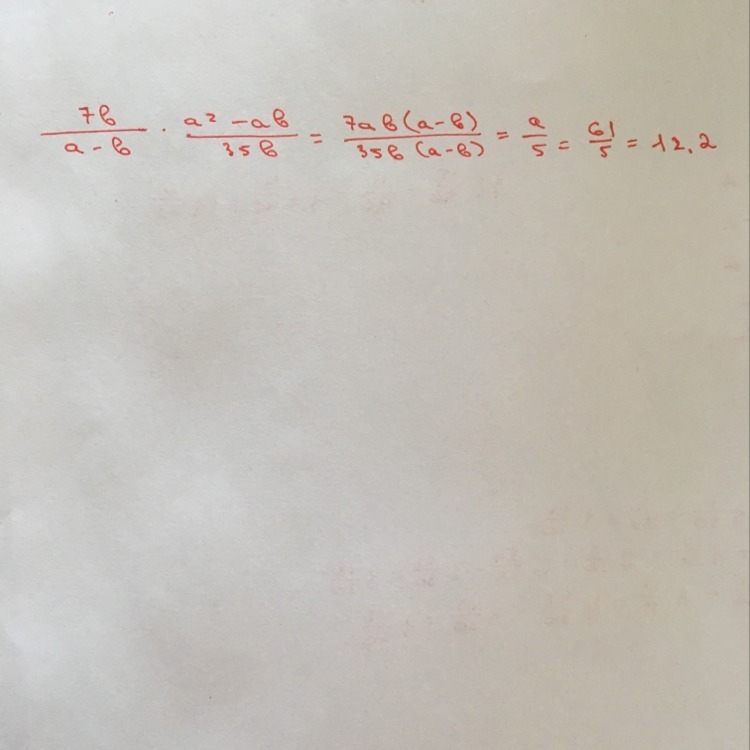 7b/(a - b) · (a² - ab)/(35b) = 7ab(a-b)/(35b(a-b)) = a/5 = 61/5 = 12.2